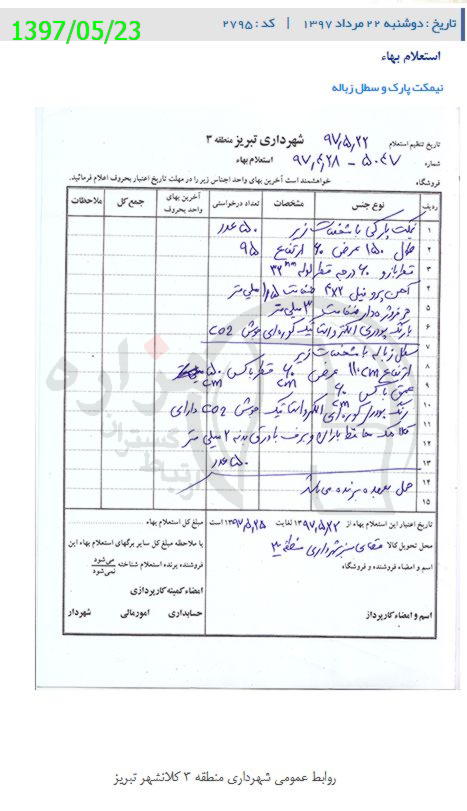 تاریخ : دوشنبه ۲۲ مرداد ۱۳۹۷ | کد : ۲۷۹۵
1397/05/23
استعلام بهاء
نیمکت پارک و سطل زباله
تاریخ تنظیم استعلام ۹۷,۵,۲۲ شهرداری تبریز منطقه ۳
شماره ۵۰۴۷ - ۹۷,۴,۲۸ استعلام بهاء
فروشگاه خواهشمند است آخرین بهای واحد اجناس زیر را در مهلت تاریخ اعتبار بحروف اعلام فرمائید.
ردیف نوع جنس مشخصات تعداد درخواستی آخرین بهای واحد بحروف جمع کل ملاحظات
۱ نیمکت پارکی با مشخصات زیر ۵۰ عدد
۲ طول ۱۵۰ عرض ۶۰ ارتفاع ۹۵
۳ قطر بازو ۶۰ درجه قطر لوله ۳۲mm
۴ آهن پروفیل ۴x۲ ضخامت ۱٫۵ میلی متر
۵ ضخامت ۳ میلی متر
۶ با رنگ پودری الکترواستاتیک کوره‌ای جوش CO2
۷ سطل زباله با مشخصات زیر
۸ ارتفاع ۱۱۰cm عرض ۶۰ cm قطر باکس ۵۰ cm
۹ عمق باکس ۶۰ cm
۱۰ رنگ پودری کوره‌ای الکترواستاتیک جوش CO2 دارای
۱۱ کلاهک محافظ باران و برف با ورق ۲ میلی متر
۱۲
۱۳ ۵۰ عدد
۱۴ حمل بعهده برنده می باشد
۱۵
تاریخ اعتبار این استعلام بهاء از ۱۳۹۷,۵,۲۲ لغایت ۱۳۹۷,۵,۲۵ است مبلغ کل استعلام بهاء
محل تحویل کالا فضای سبز شهرداری منطقه ۳ با ملاحظه مبلغ کل سایر برگهای استعلام بهاء این
اسم و امضاء فروشنده و فروشگاه فروشنده برنده استعلام بهاء شناخته می‌شود نمی‌شود
امضاء کمیته کارپردازی
اسم و امضاء کارپرداز حسابداری امور مالی شهردار
هزاره
گستران
ارتباط
روابط عمومی شهرداری منطقه ۳ کلانشهر تبریز